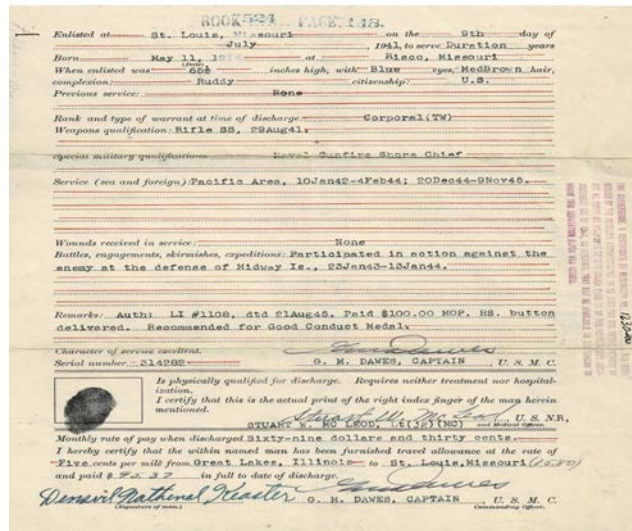 BOOK 524 PAGE 448.
Enlisted at St. Louis, Missouri on the 9th day of
July , 1941, to serve Duration years
Born May 11, at Risco, Missouri
(Date)
When enlisted was 65½ inches high, with Blue eyes, MedBrown hair,
complexion: Ruddy citizenship: U.S.
Previous service: None
Rank and type of warrant at time of discharge Corporal(TW)
Weapons qualification: Rifle SS, 29Aug41.
Special military qualifications Naval Gunfire Shore Chief
Service (sea and foreign): Pacific Area, 10Jan42-4Feb44; 20Dec44-9Nov45.
Wounds received in service: None
Battles, engagements, skirmishes, expeditions: Participated in action against the
enemy at the defense of Midway Is., 23Jan43-13Jan44.
Remarks: Auth: LI #1108, dtd 21Aug45. Paid $100.00 MOP. HS. button
delivered. Recommended for Good Conduct Medal.
Character of service excellent.
Serial number 314282 G. M. DAWES, CAPTAIN , U. S. M. C.
Is physically qualified for discharge. Requires neither treatment nor hospital-
ization.
I certify that this is the actual print of the right index finger of the man herein
mentioned.
Stuart W. McLeod
STUART W. MC LEOD, Lt(jg)(MC) , U. S. N.R,
and Medical Officer.
Monthly rate of pay when discharged Sixty-nine dollars and thirty cents.
I hereby certify that the within named man has been furnished travel allowance at the rate of
Five cents per mile from Great Lakes, Illinois to St. Louis, Missouri
and paid $ in full to date of discharge.
G. M. DAWES, CAPTAIN , U. S. M. C.
(Signature of man.) Commanding Officer.